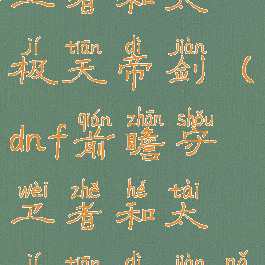 卫者和太
jí tiān dì jiàn
极天帝剑(
qián zhān shǒu
dnf前瞻守
wèi zhě hé tài
卫者和太
jí tiān dì jiàn nǎ